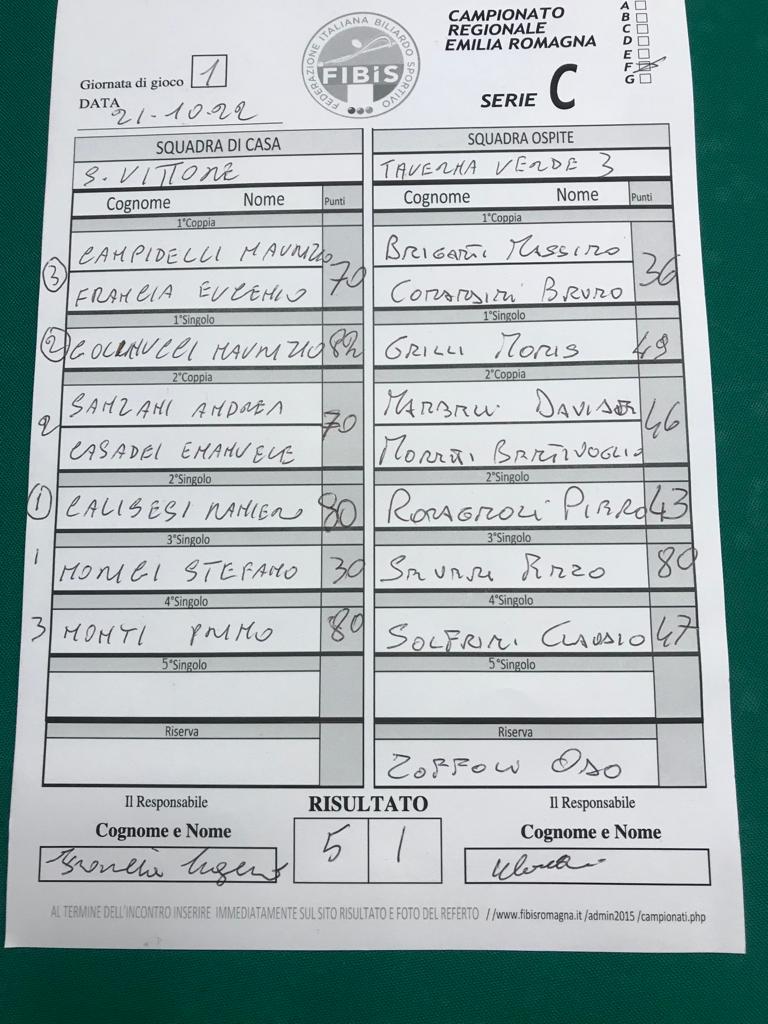 Giornata di gioco 1
DATA 21-10-22
FEDERAZIONE ITALIANA BILIARDO SPORTIVO
FIBiS
CAMPIONATO
REGIONALE
EMILIA ROMAGNA
SERIE C
A
B
C
D
E
F
G
SQUADRA DI CASA SQUADRA OSPITE
S. VITTORE TAVERNA VERDE 3
Cognome Nome Punti Cognome Nome Punti
1°Coppia 1°Coppia
3 CAMPIDELLI MAURIZIO 70 BRIGANTI MASSIMO 36
FRANCIA EUGENIO BRUNO
1°Singolo 1°Singolo
2 MAURIZIO 82 GRILLI MORIS 49
2°Coppia 2°Coppia
2 SANZANI ANDREA 70 DAVIDE 46
CASADEI EMANUELE
2°Singolo 2°Singolo
1 CALISESI RANIERO 80 ROMAGNOLI PIERO 43
3°Singolo 3°Singolo
1 MONCI STEFANO 30 80
4°Singolo 4°Singolo
3 MONTI PRIMO 80 SOLFRINI CLAUDIO 47
5°Singolo 5°Singolo
Riserva Riserva
ZOFFOLI
Il Responsabile RISULTATO Il Responsabile
Cognome e Nome 5 1 Cognome e Nome
AL TERMINE DELL'INCONTRO INSERIRE IMMEDIATAMENTE SUL SITO RISULTATO E FOTO DEL REFERTO //www.fibisromagna.it /admin2015 /campionati.php